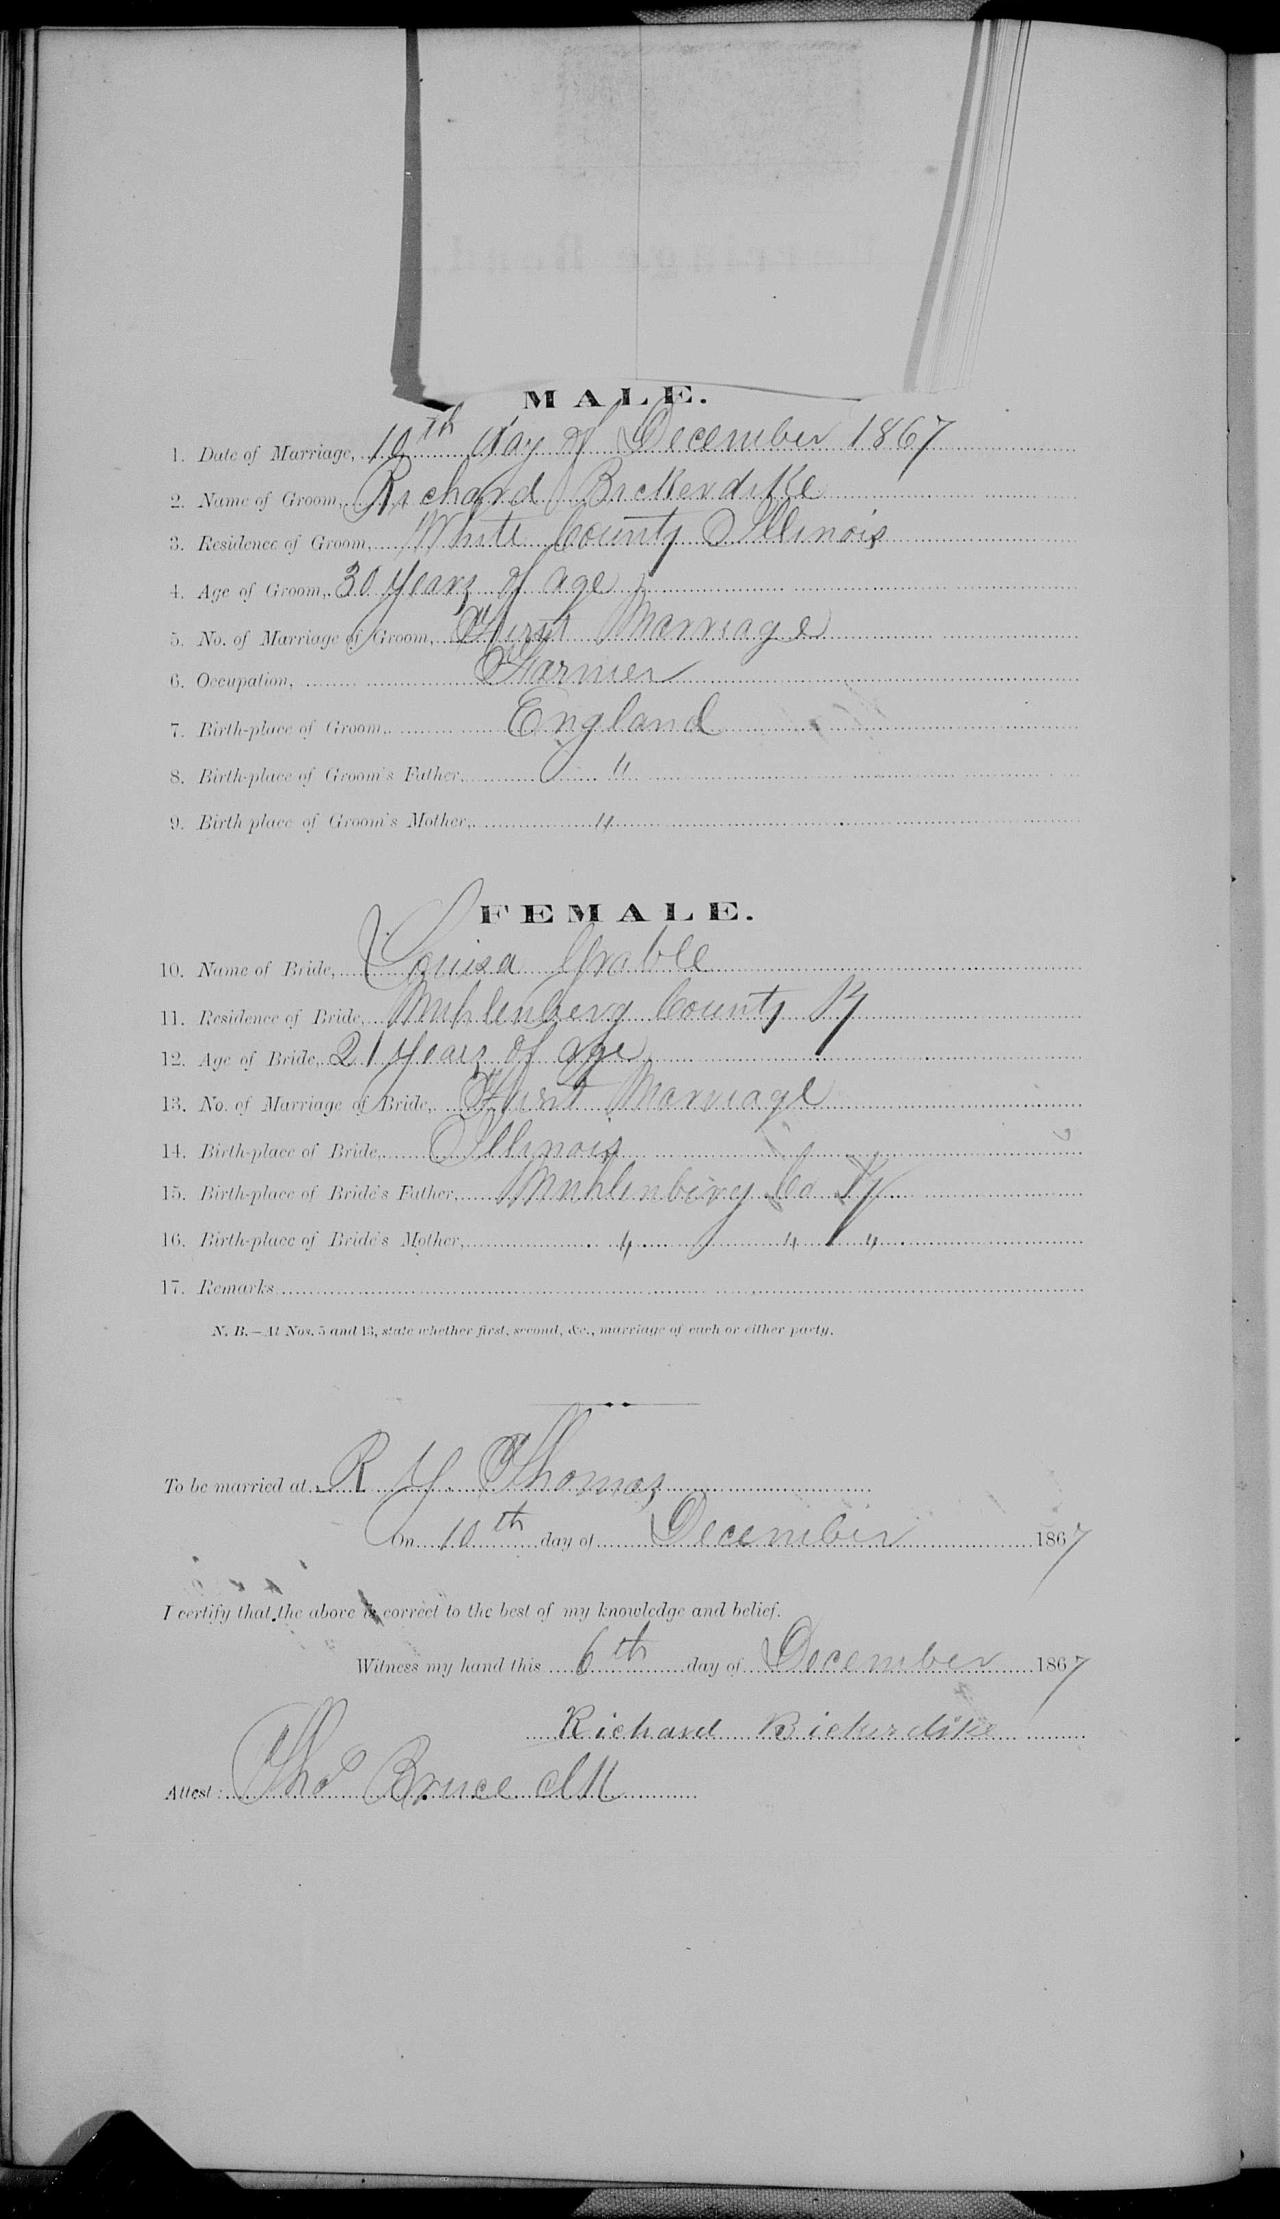 MALE.
1. Date of Marriage, 10th day of December 1867
2. Name of Groom, Richard Bickerdike
3. Residence of Groom, White County Illinois
4. Age of Groom, 30 years of age
5. No. of Marriage of Groom, First Marriage
6. Occupation, Farmer
7. Birth-place of Groom, England
8. Birth-place of Groom's Father, "
9. Birth place of Groom's Mother, "
FEMALE.
10. Name of Bride, Louisa Grable
11. Residence of Bride, Muhlenberg County Ky
12. Age of Bride, 21 years of age
13. No. of Marriage of Bride, First Marriage
14. Birth-place of Bride, Illinois
15. Birth-place of Bride's Father, Muhlenberg Co Ky
16. Birth-place of Bride's Mother, " " "
17. Remarks
N. B.—At Nos. 5 and 13, state whether first, second, &c., marriage of each or either party.
To be married at R Y. Thomas
On 10th day of December 1867
I certify that the above is correct to the best of my knowledge and belief.
Witness my hand this 6th day of December 1867
Richard Bickerdike
Attest: Thos Bruce Clk